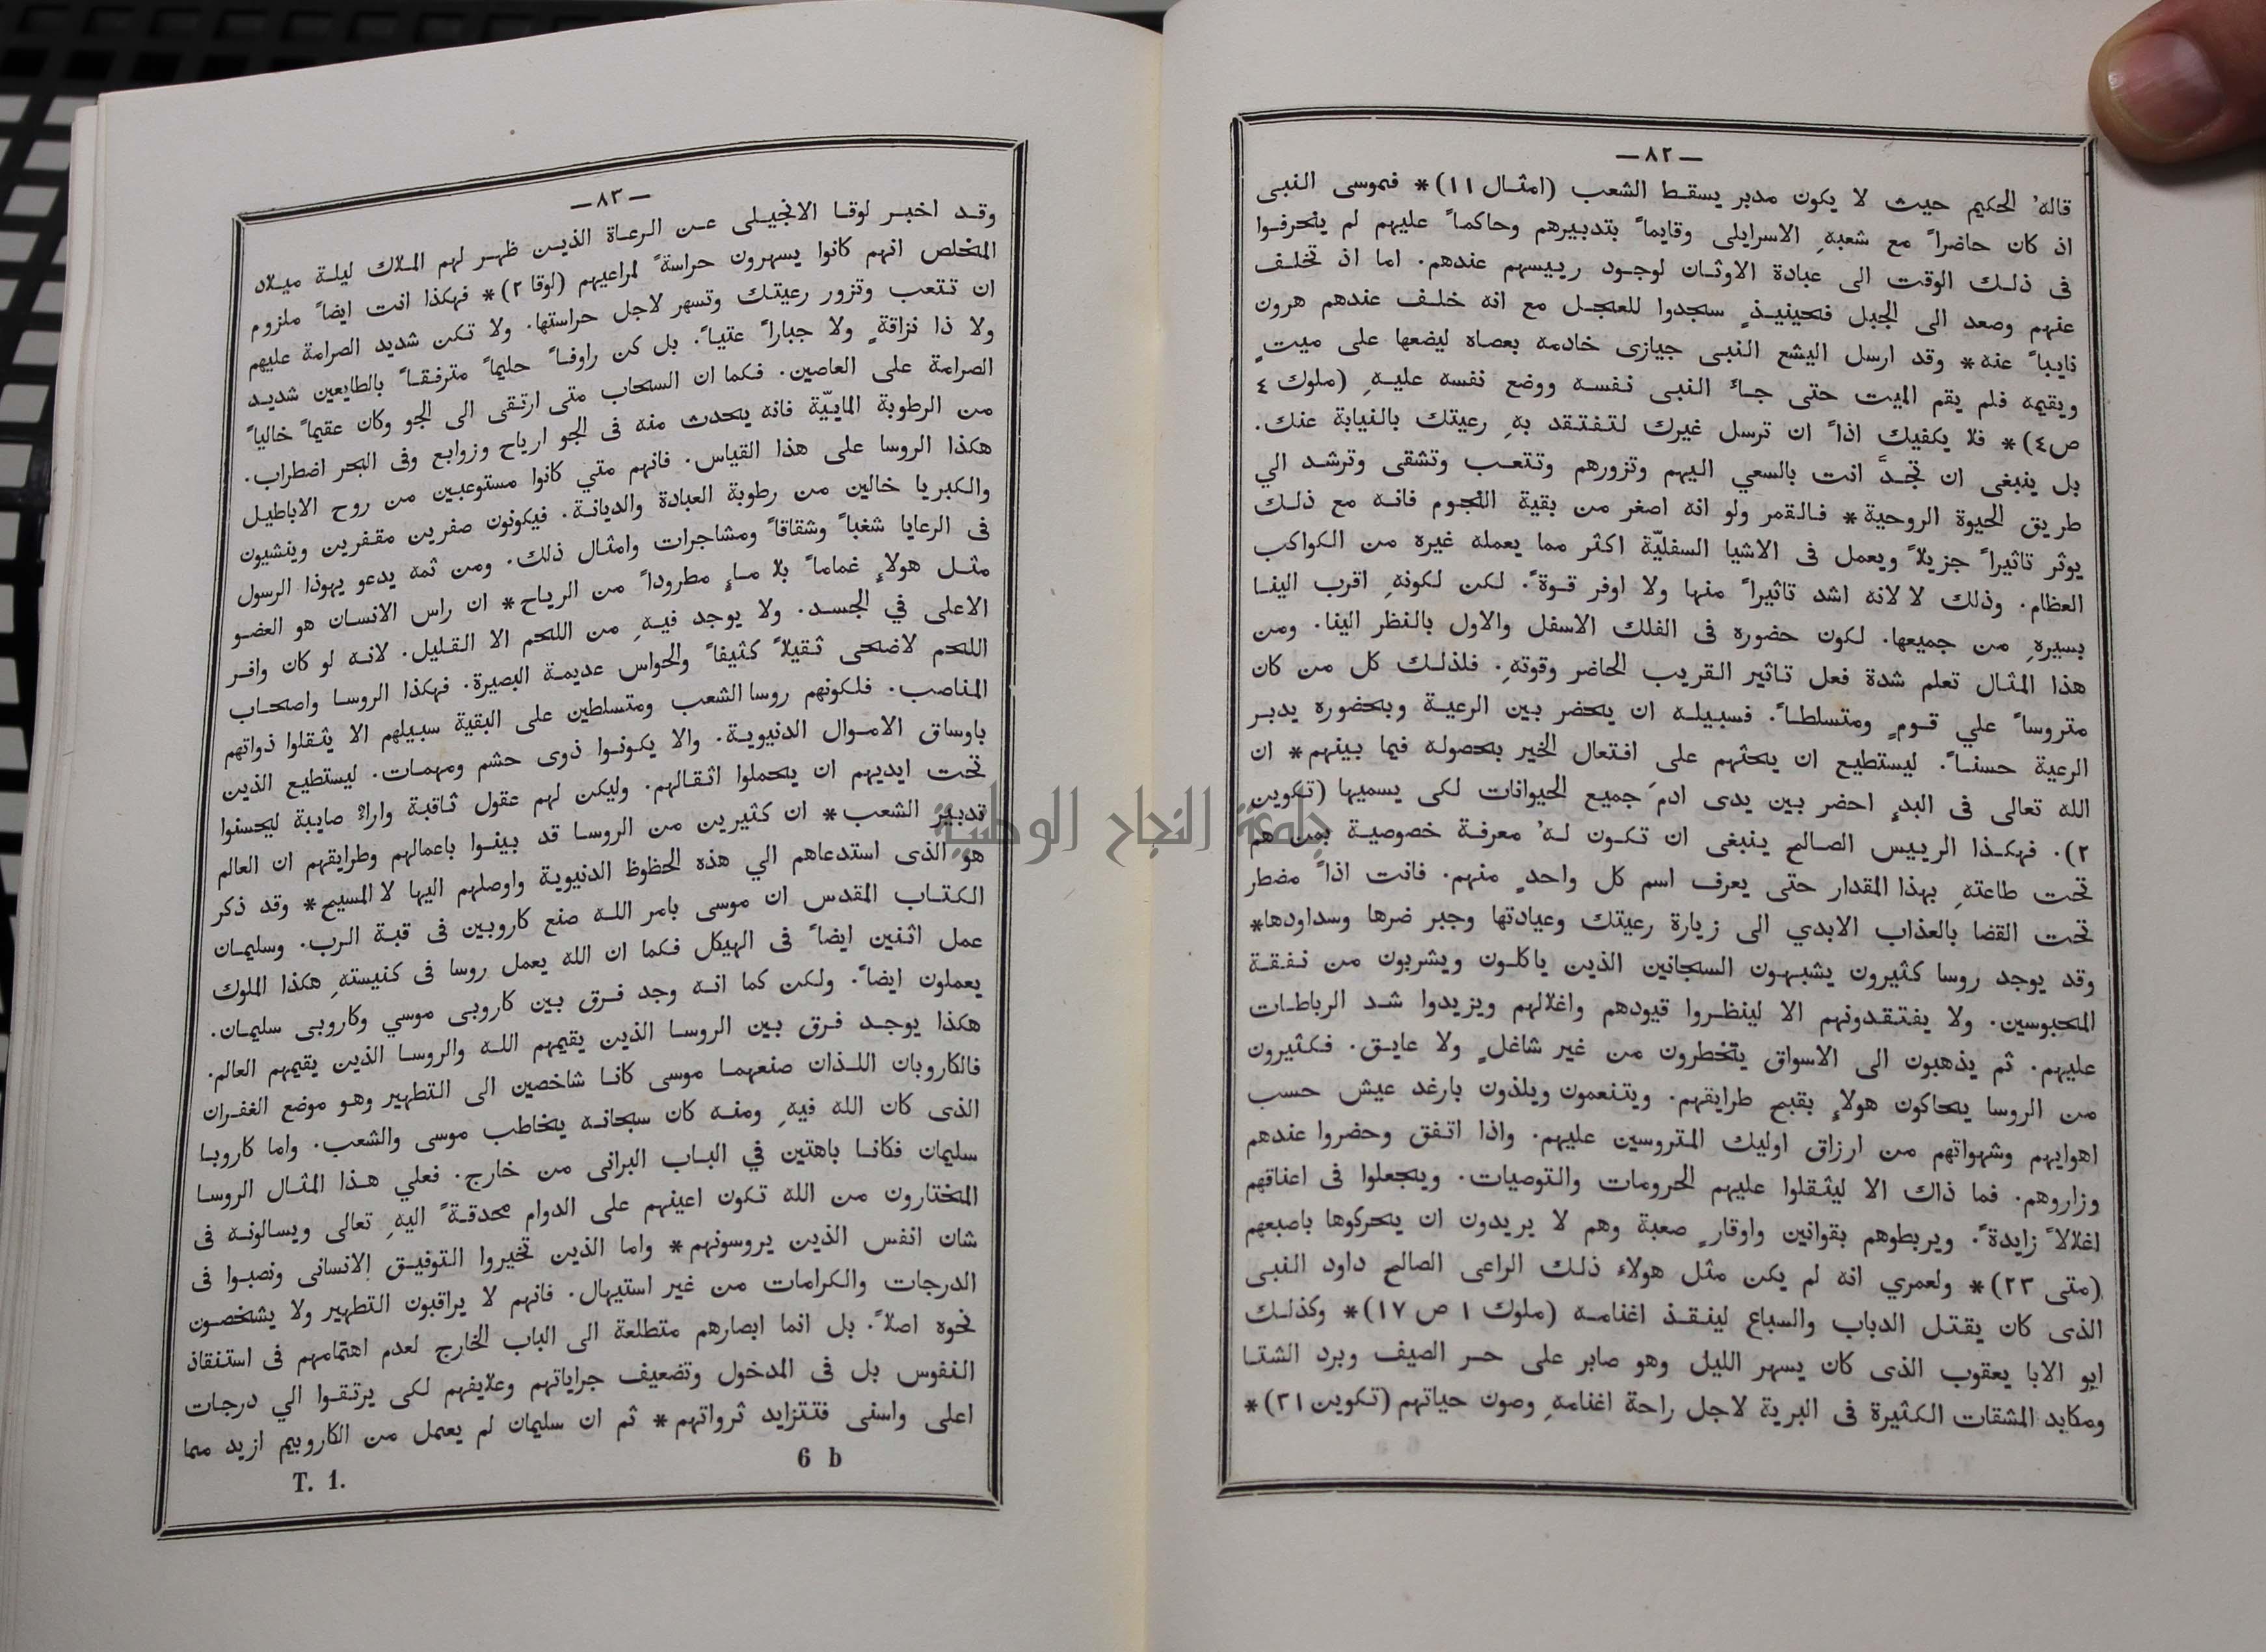 —٨٢—
قاله' الحكيم حيث لا يكون مدبر يسقـط الشعب (امثـال ١١)* فموسى النبى
اذ كان حاضراً مع شعبهِ الاسرايلى وقايماً بتدبيرهم وحاكماً عليهم لم ينحرفـوا
فى ذلـك الوقت الى عبادة الاوثـان لوجـود رييسهم عندهم. اما اذ تخلـف
عنهم وصعد الى الجبل فحينيـذٍ سجدوا للعجـل مع انه خلـف عندهم هرون
نايباً عنه* وقد ارسل اليشع النبـى جيازى خادمه بعصاه ليضعها على ميتٍ
ويقيمه فلم يقم الميت حتى جـاءَ النبى نفسـه ووضع نفسه عليـهِ (ملوك ٤
ص٤)* فلا يكفيك اذاً ان ترسل غيرك لتـفتـقد بهِ رعيتك بالنيابة عنك.
بل ينبغى ان تجـدَّ انت بالسعي اليهم وتزورهم وتتعـب وتشقى وترشـد الي
طريق الحيوة الروحية* فـالقمر ولو انه اصغر من بقية النجـوم فانـه مع ذلـك
يوثر تاثيراً جزيلاً ويعمل فى الاشيا السفليّة اكثر مما يعمله غيره من الكواكب
العظام. وذلك لا لانه اشد تاثيراً منها ولا اوفر قـوةً. لكن لكونهِ اقرب الينـا
بسيرهِ من جميعها. لكون حضوره فى الفلك الاسفل والاول بالنظر الينا. ومن
هذا المثـال تعلم شدة فعل تـاثير القريب الحاضر وقوتهِ. فلذلـك كل من كان
متروساً علي قـومٍ ومتسلطـاً. فسبيلـه ان يحضر بين الرعيـة وبحضوره يدبـر
الرعية حسنـاً. ليستطيع ان يحثهم على افتعال الخير بحصوله فيما بينهم* ان
الله تعالى فى البدءِ احضر بين يدى ادمَ جميع الحيوانات لكى يسميها (تكوين
٢). فهكـذا الرييس الصـالح ينبغى ان تكـون لـه' معرفـة خصوصيـة بمن هم
تحت طاعتهِ بهذا المقدار حتى يعرف اسم كل واحدٍ منهم. فانت اذاً مضطر
تحت القضا بالعذاب الابدي الى زيارة رعيتك وعيادتها وجبر ضرها وسداودها*
وقد يوجد روسا كثيرون يشبهـون السجانين الذين ياكلـون ويشربون من نـفقـة
المحبوسين. ولا يفتـقدونهم الا لينظـروا قيودهم واغلالهم ويزيدوا شـد الرباطـات
عليهم. ثم يذهبون الى الاسواق يتخطرون من غير شاغلٍ ولا عايـق. فكثيرون
من الروسا يحاكون هولاءِ بقبح طرايقهم. ويتنعمون ويلذون بارغد عيش حسب
اهوايهم وشهواتهم من ارزاق اوليك المتروسين عليهم. واذا اتـفق وحضروا عندهم
وزاروهم. فما ذاك الا ليثـقلوا عليهم الحرومات والتوصيات. ويجعلوا فى اعناقهم
اغلالاً زايدةً. ويربطوهم بقوانين واوقارٍ صعبة وهم لا يريدون ان يحركوها باصبعهم
(متى ٢٣)* ولعمري انه لم يكن مثل هولاء ذلـك الراعى الصالح داود النبى
الذى كان يقتـل الدباب والسباع لينـقـذ اغنامـه (ملوك ١ ص ١٧)* وكذلـك
ابو الابا يعقوب الذى كان يسهر الليل وهو صابر على حـر الصيف وبرد الشتـا
ومكابد المشقات الكثيرة فى البرية لاجل راحة اغنامهِ وصون حياتهم (تكوين ٣١)*
—٨٣—
وقـد اخبـر لوقـا الانجيـلى عـن الرعـاة الذيـن ظهـر لهم المـلاك ليلـة ميـلاد
المخلص انهم كانوا يسهرون حراسةً لمراعيهم (لوقا ٢)* فهكذا انت ايضاً ملزوم
ان تـتعب وتزور رعيتـك وتسهر لاجل حراستها. ولا تـكن شديد الصرامة عليهم
ولا ذا نزاقةٍ ولا جباراً عتيـاً. بل كن راوفـاً حليماً مترفـقـاً بالطايعين شديـد
الصرامة على العاصين. فـكما ان السحاب متى ارتـقى الى الجو وكان عقيماً خالياً
من الرطوبة الماييّة فانه يحدث منه فى الجو ارياح وزوابع وفى البحر اضطراب.
هكذا الروسا على هذا القياس. فانهم متي كانوا مستوعبين من روح الاباطيـل
والكبريا خالين من رطوبة العبادة والديانـة. فيكونون صفرين مقـفرين وينشيون
فى الرعايا شغباً وشقاقاً ومشاجرات وامثـال ذلك. ومن ثمه يدعو يهوذا الرسول
مثـل هولاءِ غماماً بلا مـاءٍ مطروداً من الريـاح* ان راس الانسـان هو العضـو
الاعلى في الجسـد. ولا يوجد فيـهِ من اللحم الا القـليل. لانـه لو كان وافـر
اللحم لاضحى ثـقيلاً كثيفاً والحواس عديمـة البصيرة. فهكذا الروسـا واصحـاب
المناصب. فلـكونهم روسا الشعب ومتسلطين على البقية سبيلهم الا يثـقلوا ذواتهم
باوساق الامـوال الدنيويـة. والا يكـونـوا ذوى حشم ومهمـات. ليستطيع الذين
تحت ايديهم ان يحملوا اثـقـالهم. وليكن لهم عقول ثـاقبة واراءٌ صايبة ليحسنوا
تدبير الشعب* ان كثيرين من الروسـا قد بينـوا باعمالهم وطرايقهم ان العالم
هو الذى استدعاهم الي هذه الحظوظ الدنيوية واوصلهم اليها لا المسيح* وقد ذكر
الكتـاب المقدس ان موسى بامر اللـه صنع كاروبين فى قبـة الـرب. وسليمـان
عمل اثـنين ايضاً فى الهيكل فكما ان الله يعمل روسا فى كنيستهِ هكذا الملوك
يعملون ايضاً. ولـكن كما انـه وجد فـرق بـين كاروبـى موسي وكاروبى سليمـان.
هكذا يوجـد فـرق بين الروسـا الذين يقيمهم اللـه والروسـا الذين يقيمهم العالم.
فالكاروبان اللـذان صنعهمـا موسى كانـا شاخصين الى التطهير وهـو موضع الغفـران
الذى كان الله فيهِ ومنـه كان سبحانـه يخاطب موسى والشعب. واما كاروبـا
سليمان فكانـا باهتين في البـاب البرانى من خارج. فعلي هـذا المثـال الروسـا
المختارون من الله تـكون اعينهم على الدوام محدقـةً اليهِ تعالى ويسالونـه فى
شان انفس الذين يروسونهم* واما الذين تخيروا التوفيـق الانسانى ونصبـوا فى
الدرجات والكرامات من غير استيهال. فانهم لا يراقبون التطهير ولا يشخصـون
نحوه اصلاً. بل انما ابصارهم متطلعة الى الباب الخارج لعدم اهتمامهم فى استـنقاذ
النفوس بل فى المدخول وتضعيف جراياتهم وعلايفهم لكى يرتـقـوا الي درجـات
اعلى واسنى فتـتزايد ثرواتهم* ثم ان سليمان لم يعمل من الكاروبيم ازيد مما
6 b
T. 1.
جامعة النجاح الوطنية